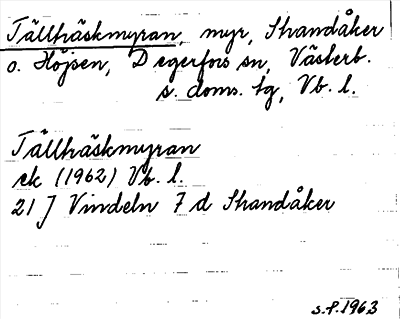 Tällträskmyran, myr, Strandåker
o. Höjsen, Degerfors sn, Västerb.
s. doms. tg, Vb. l.
Tällträskmyran
ek (1962) Vb. l.
21 J Vindeln 7 d Strandåker
s.f. 1963